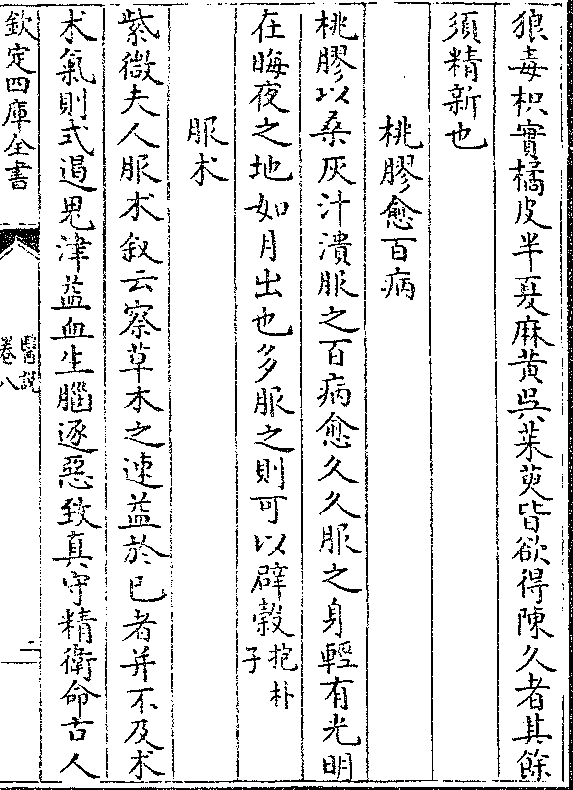 狼毒枳實橘皮半夏麻黄吳茱萸皆欲得陳久者其餘
須精新也
桃膠愈百病
桃膠以桑灰汁漬服之百病愈久久服之身輕有光明
在晦夜之地如月出也多服之則可以辟糓抱朴子
服术
紫微夫人服术叙云察草木之速益於已者并不及术
术氣則式遏鬼津益血生腦逐惡致真守精衛命古人
欽定四庫全書
醫説
卷八
二